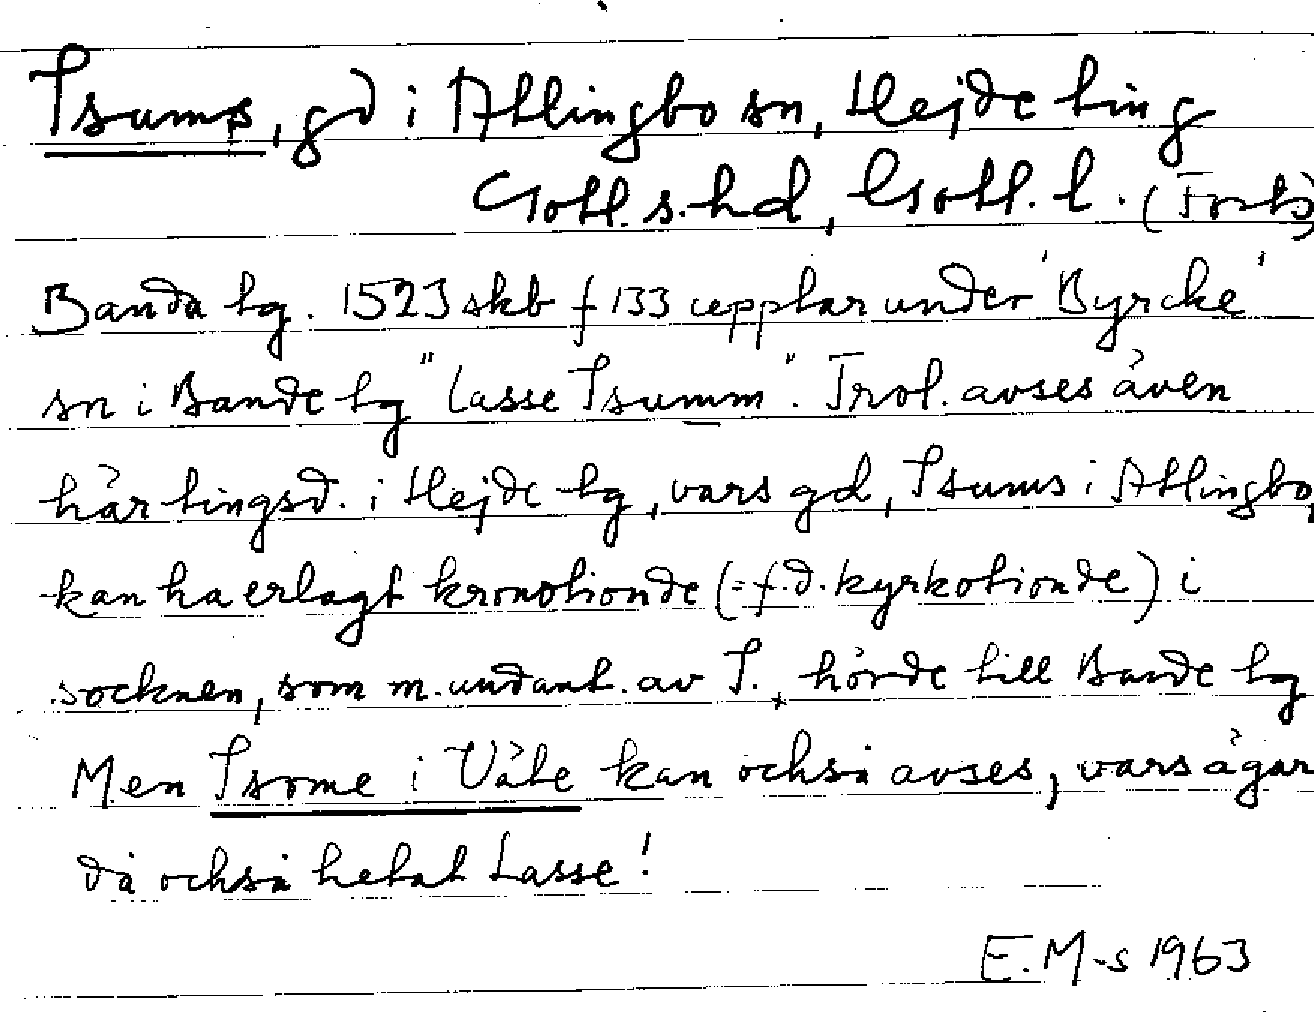 Isums, gd i Atlingbo sn, Hejde ting
Gotl. s. hd, Gotl. l. (Forts)
Banda tg. 1523 skb f 133 upptar under 'Byrcke'
sn i Bande tg "Lasse Isumm". Trol. avses även
här tingsd. i Hejde tg, vars gd, Isums i Atlingbo,
kan ha erlagt kronotionde (= f.d. kyrkotionde) i
socknen, som m. undant. av I., hörde till Bande tg
Men Isome i Väte kan också avses, vars ägar
då också hetat Lasse!
E. M-s 1963